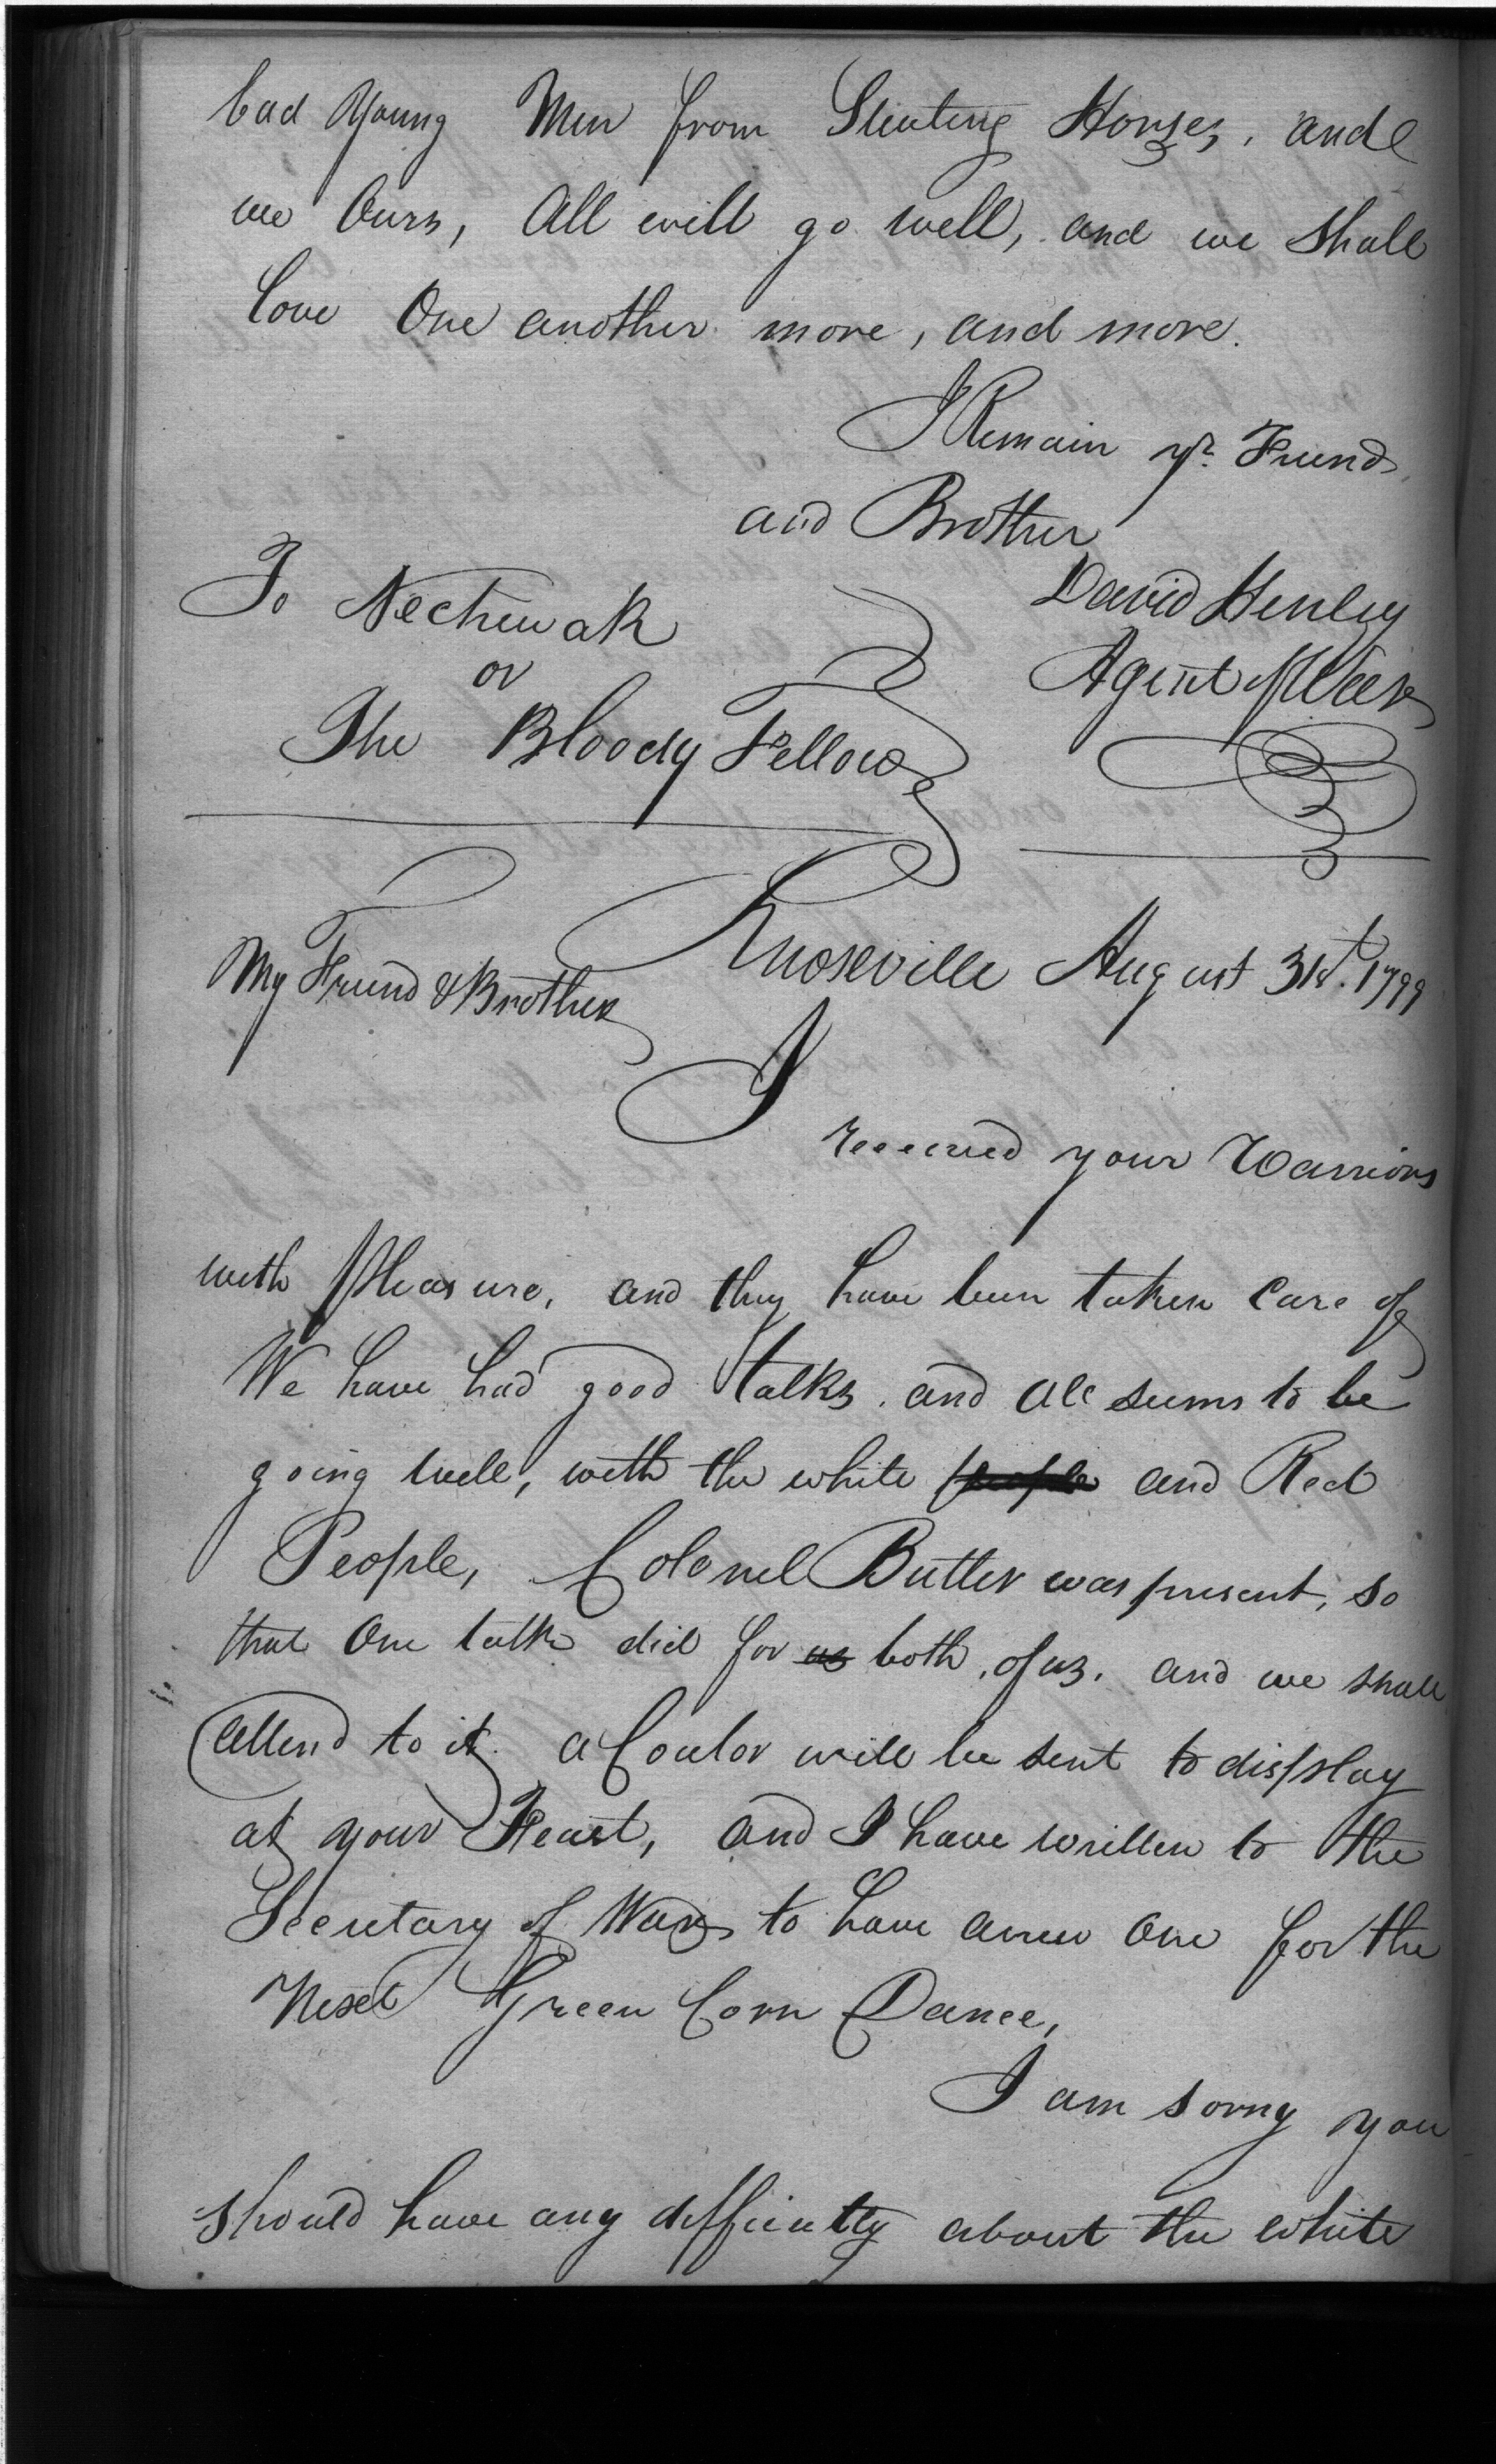 bad Young Men from Steating Horses, and
we Ours, All will go well, and we shall
love One another more, and more.
I Remain yr. Friend
and Brother
David Henley
Agent
To Nechuwak
or
The Bloody Fellow
Knoxville August 31st. 1799
My Friend & Brother
I
received your Warriors
with Pleasure, and they have been taken Care of
We have had good talks, and all seems to be
going well, with the white people and Red
People, Colonel Butler was present, so
that One talk did for us both, of us, and we shall
attend to it. a Coulor will be sent to display
at your Feast, and I have written to the
Secretary of War to have anew One for the
Next Green Corn Dance,
I am sorry you
should have any difficulty about the white